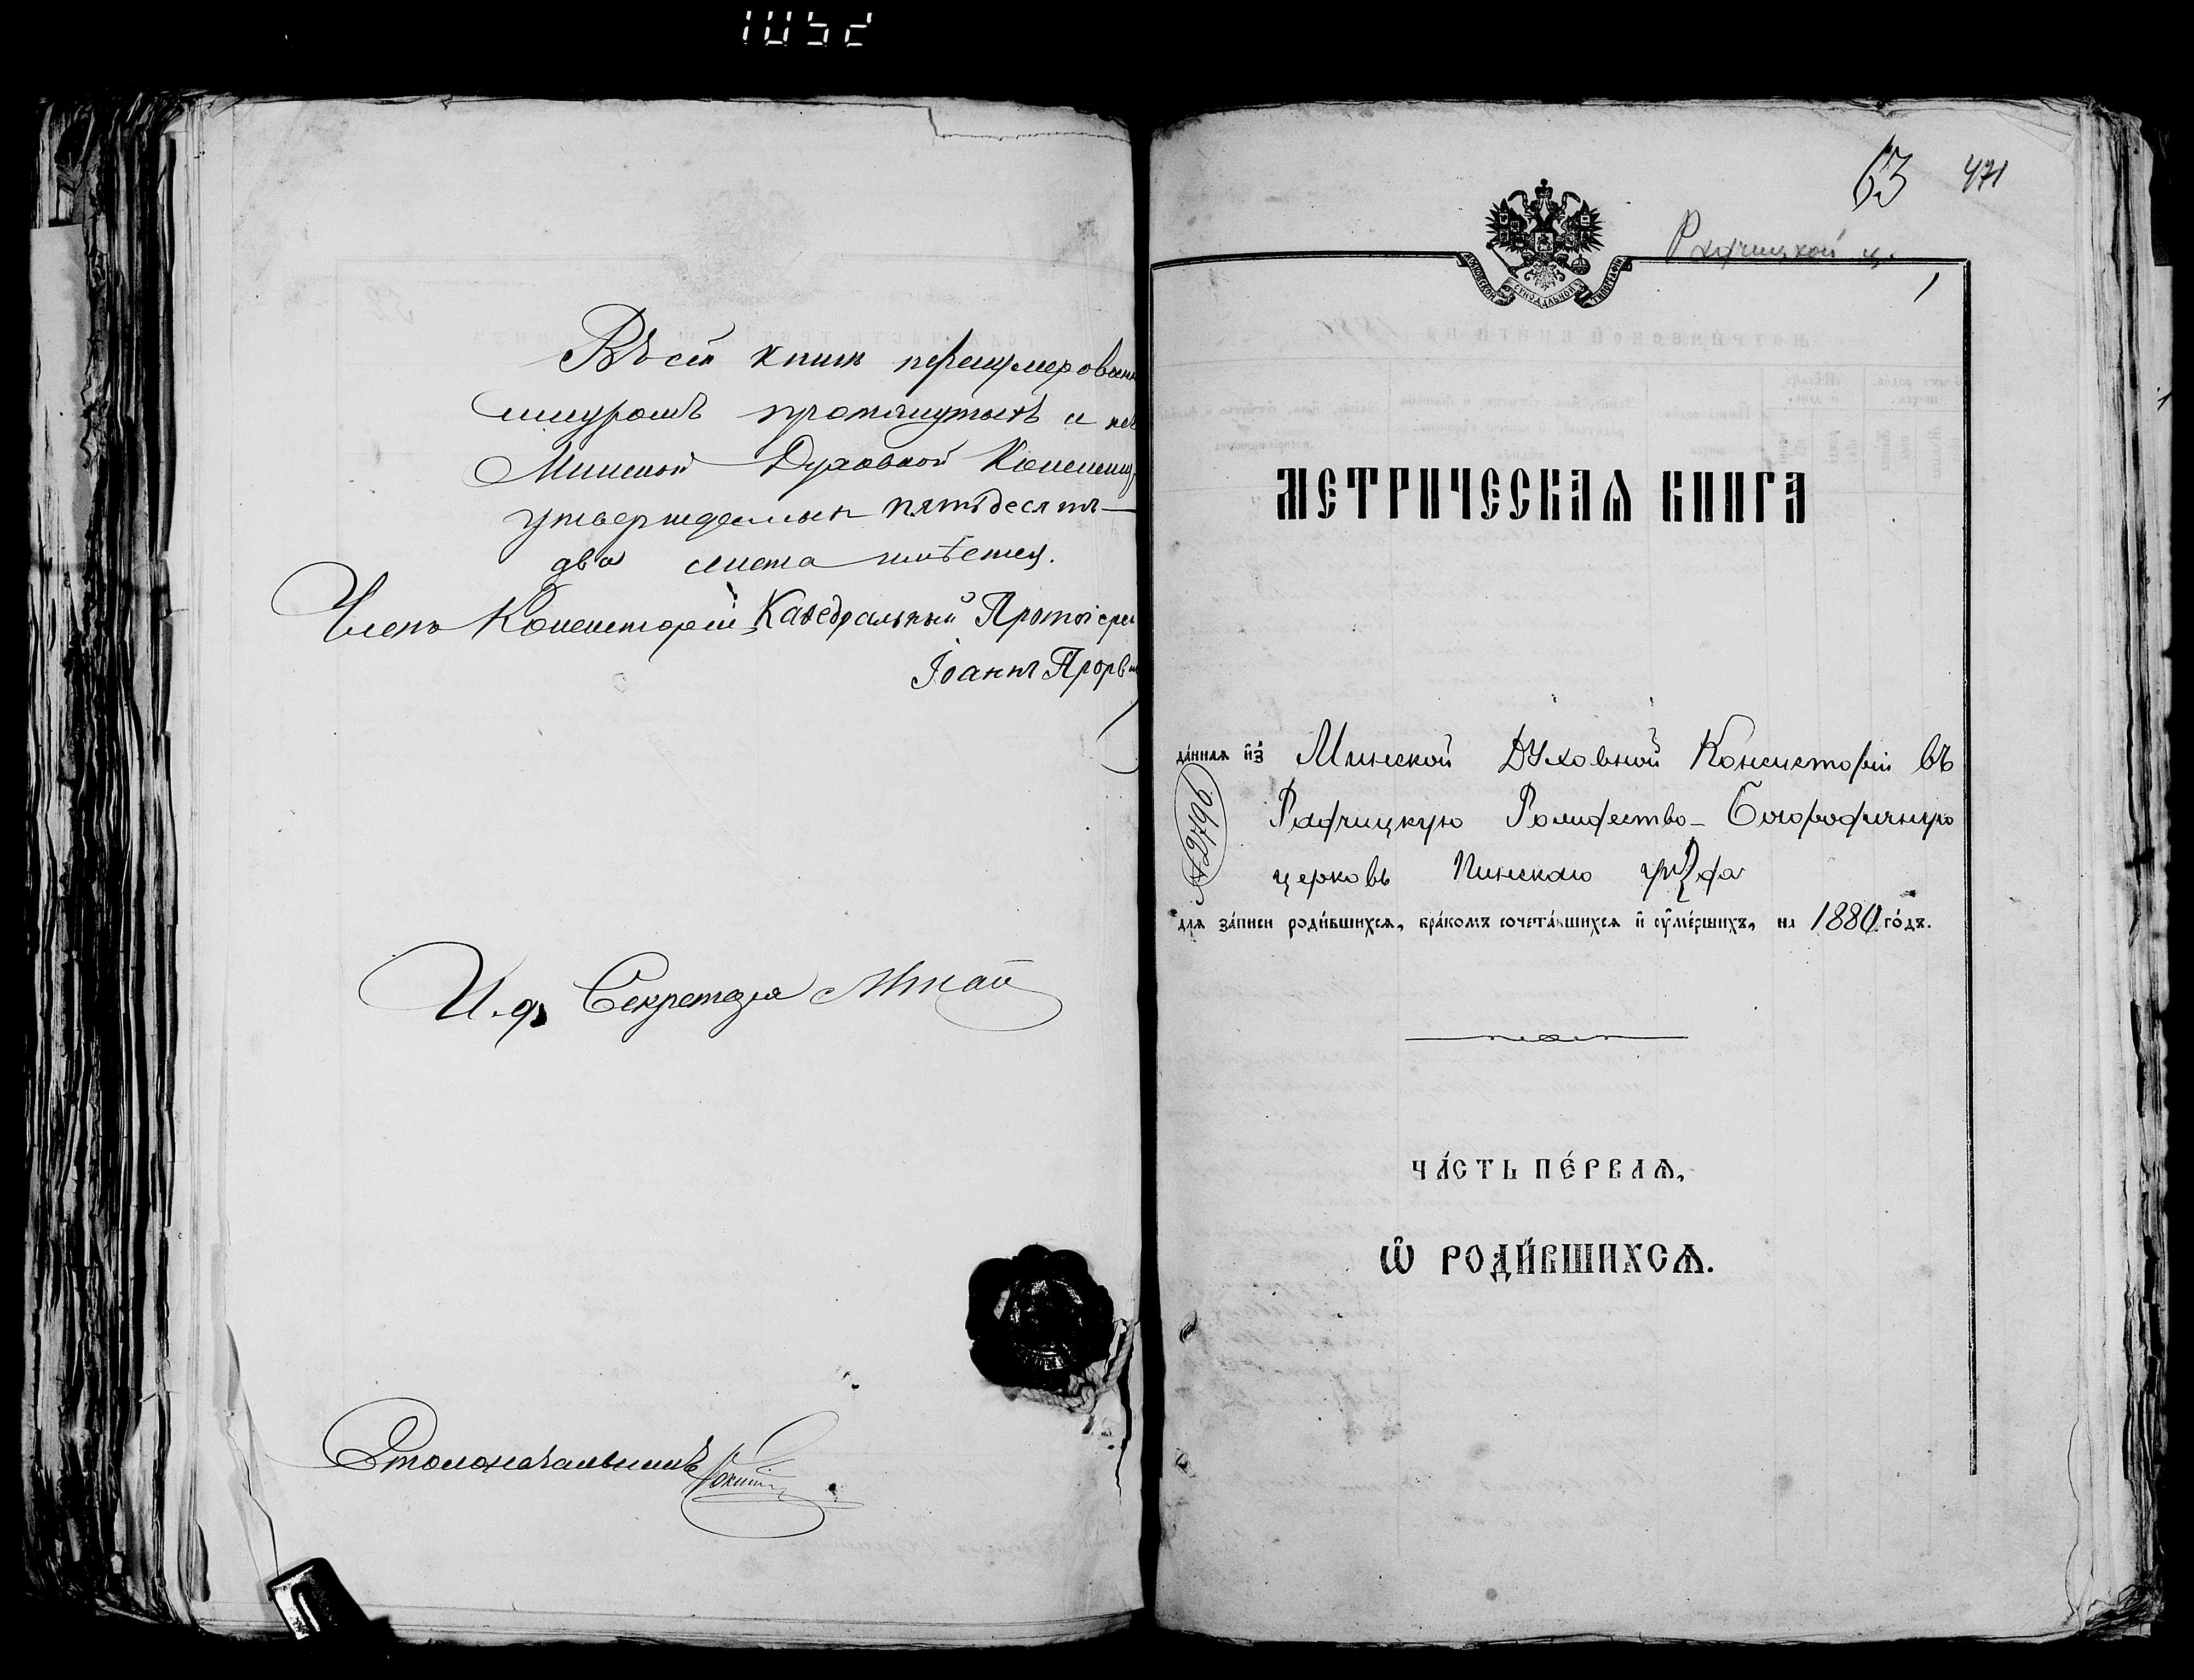 1052
Въ сей книгѣ перенумерован
шнуромъ протянутыхъ и
Минской Духовной Консист
утвержденныхъ пятьдесятъ
два листа имѣется.
Членъ Консисторіи Каѳедральный Протоіерей
Іоаннъ
И. д. Секретаря
Столоначальникъ
63 471
Радчицкой ц.
1
МОСКОВСКОЙ СѴНОДАЛЬНОЙ ТИПОГРАФІИ
МЕТРИЧЕСКАѦ КНИГА
да́нная и҆з̾ Минской Духовной Консисторіи въ
№ 2796
Радчицкую Рождество-Богородичную
церковь Пинскаго уѣзда
для за́писи роди́вшихся, бра́комъ сочета́вшихся и҆ ᲂу҆ме́ршихъ, на 1880 го́дъ.
ЧА́СТЬ ПЕ́РВАѦ,
Ѡ҆ РОДИ́ВШИХСѦ.